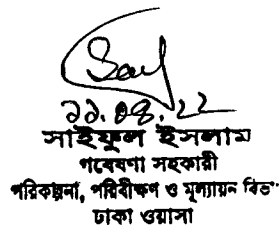 ২১.০৪.২২
সাইফুল ইসলাম
গবেষণা সহকারী
পরিকল্পনা, পরিবীক্ষণ ও মূল্যায়ন বিভ
ঢাকা ওয়াসা